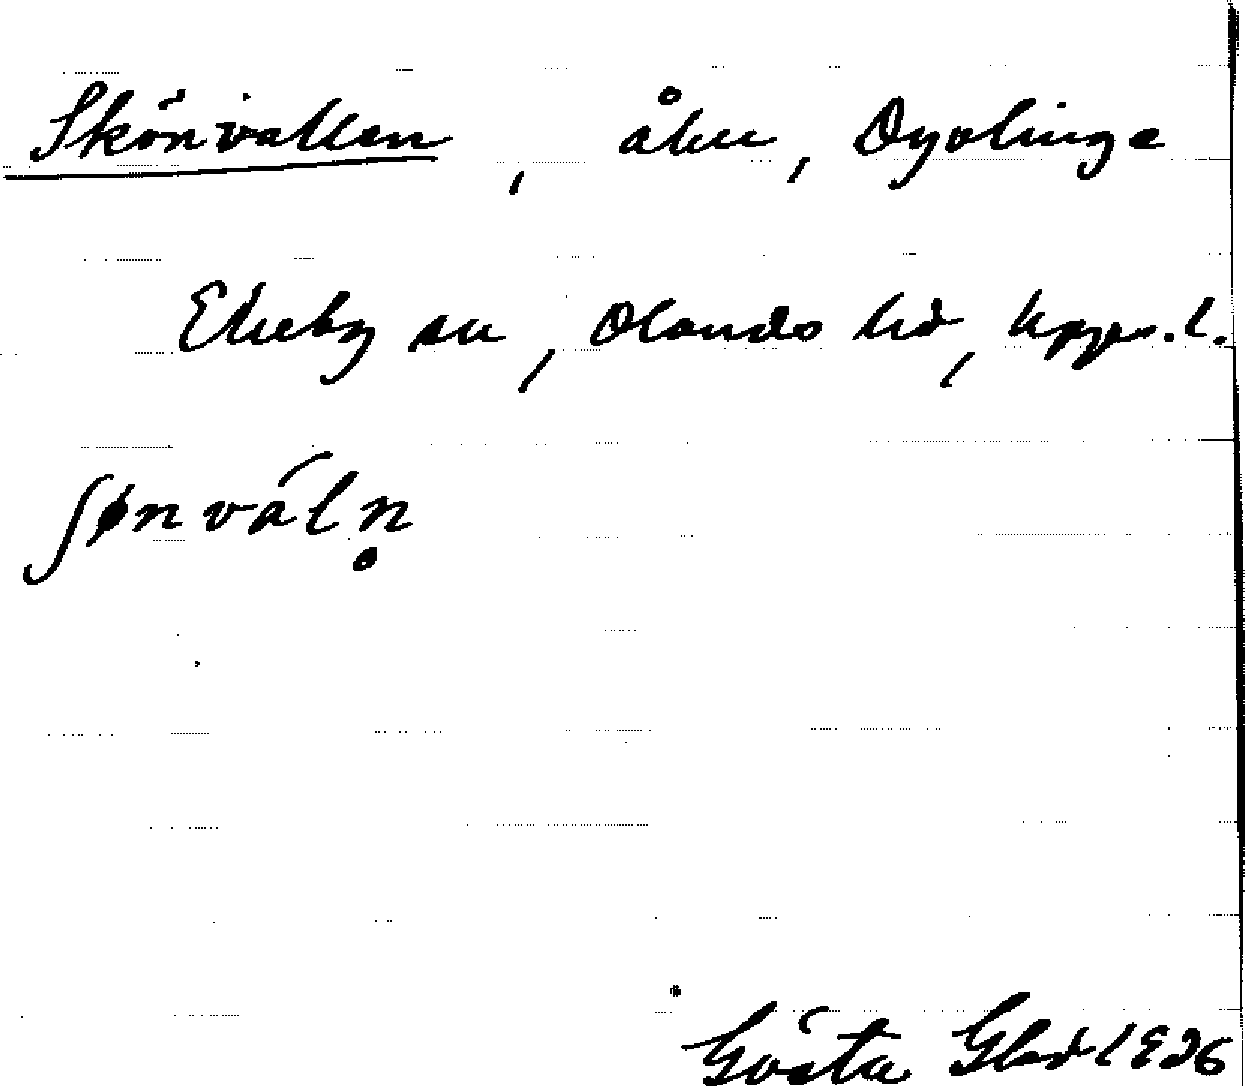 Skönvallen, åker, Dyvlinge
Ekeby sn, Olands hd, Upps. l.
ʃønváln̥
Gösta Glad 1936